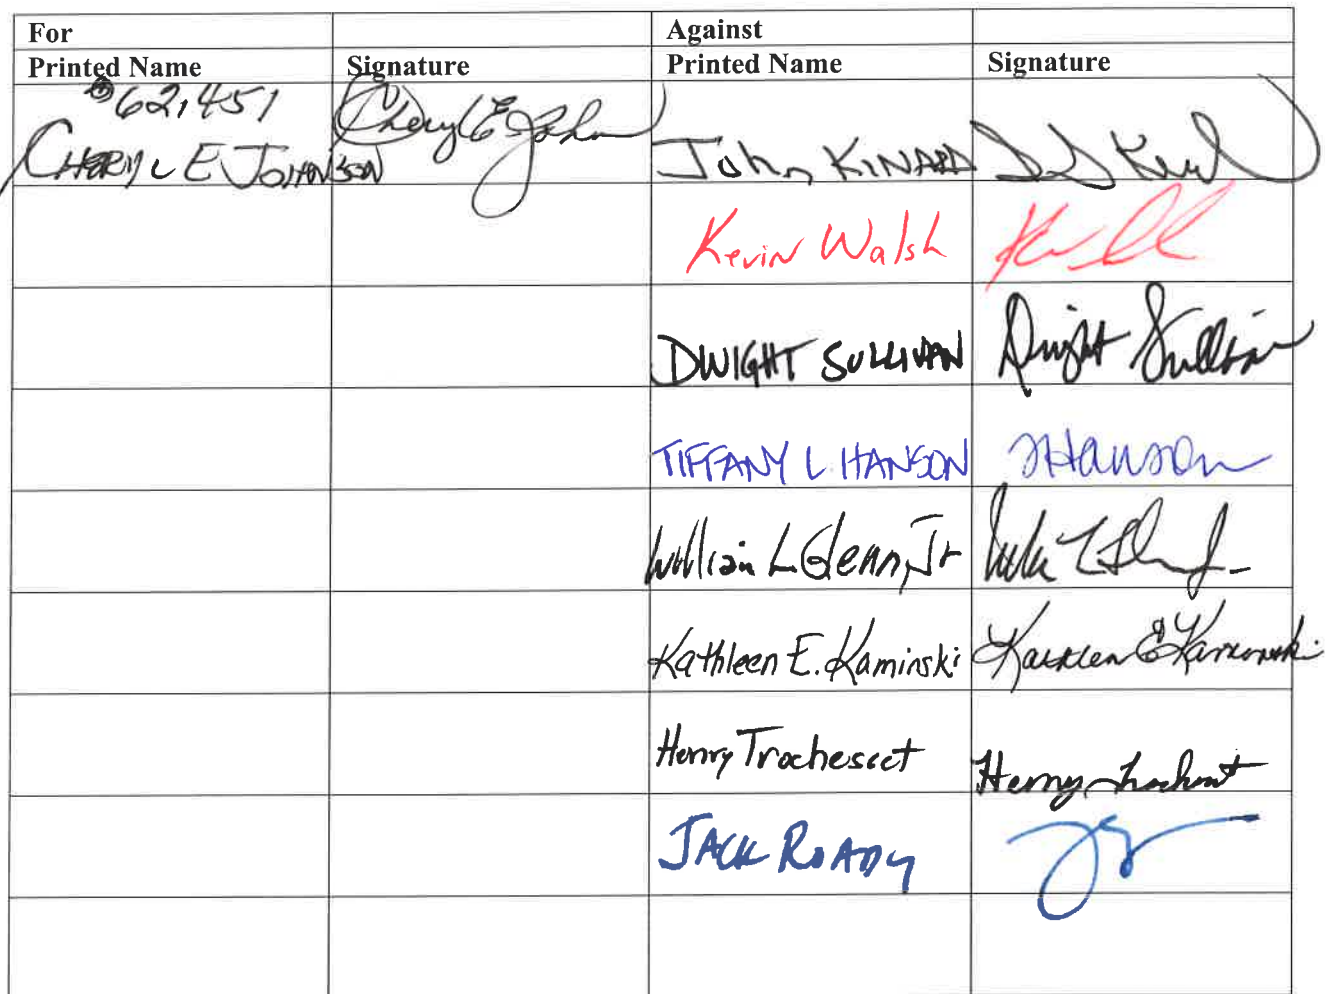 For Against
Printed Name Signature Printed Name Signature
$621,451
CHERYL E JOHNSON Cheryl E Johnson John KINARD
Kevin Walsh
DWIGHT SULLIVAN Dwight Sullivan
TIFFANY L HANSON THanson
William L Glenn, Jr
Kathleen E. Kaminski Kathleen E Kaminski
Henry Trochesset Henry Trochesset
JACK ROADY